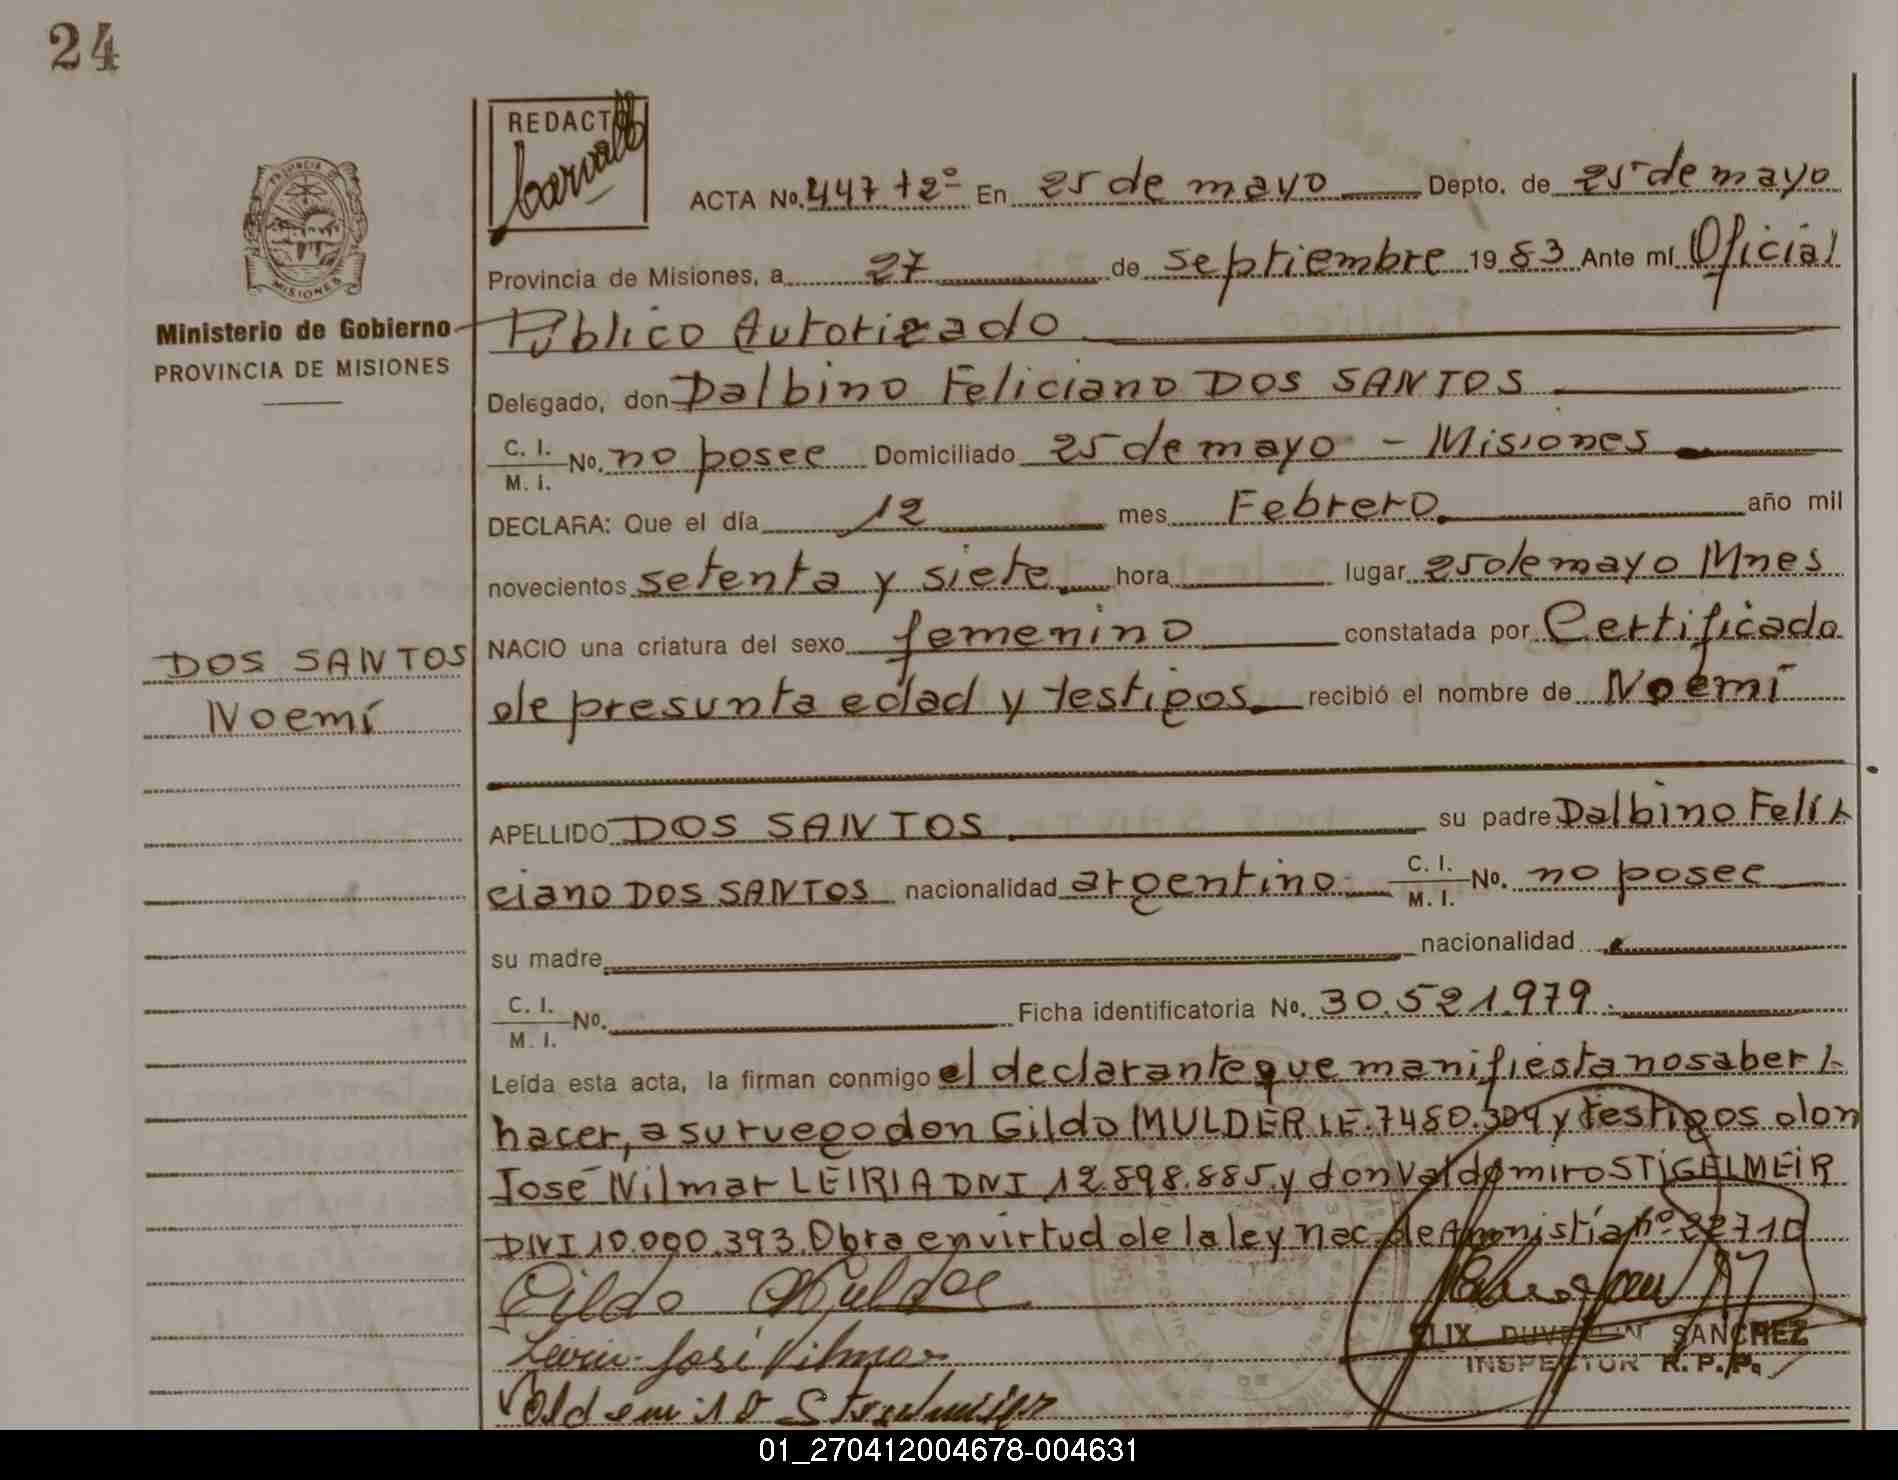 24
REDACTÓ
Carvallo
ACTA No. 447 t 2º En 25 de mayo Depto. de 25 de mayo
Provincia de Misiones, a 27 de septiembre 1983 Ante mí Oficial
Ministerio de Gobierno
PROVINCIA DE MISIONES
Público Autorizado
Delegado, don Dalbino Feliciano DOS SANTOS
C. I. M. I. No. no posee Domiciliado 25 de mayo - Misiones
DECLARA: Que el día 12 mes Febrero año mil
novecientos setenta y siete hora lugar 25 de mayo Mnes
NACIO una criatura del sexo femenino constatada por Certificado
DOS SANTOS
Noemí
de presunta edad y testigos recibió el nombre de Noemí
APELLIDO DOS SANTOS su padre Dalbino Feli
ciano DOS SANTOS nacionalidad argentino C. I. M. I. No. no posee
su madre nacionalidad
C. I. M. I. No. Ficha identificatoria No. 30.521.979.
Leída esta acta, la firman conmigo el declarante que manifiesta no saber
hacer, a su ruego don Gildo MULDER LE. 7480.304 y testigos don
José Nilmar LEIRIA DNI 12.898.885 y don Valdomiro STIGELMEIR
DNI 10.000.393. Obra en virtud de la ley nac. de Amnistía nº 22710
Gildo Mulder
Leiria José Nilmar
SANCHEZ
INSPECTOR R. P. P.
PROVINCIA DE MISIONES
01_270412004678-004631